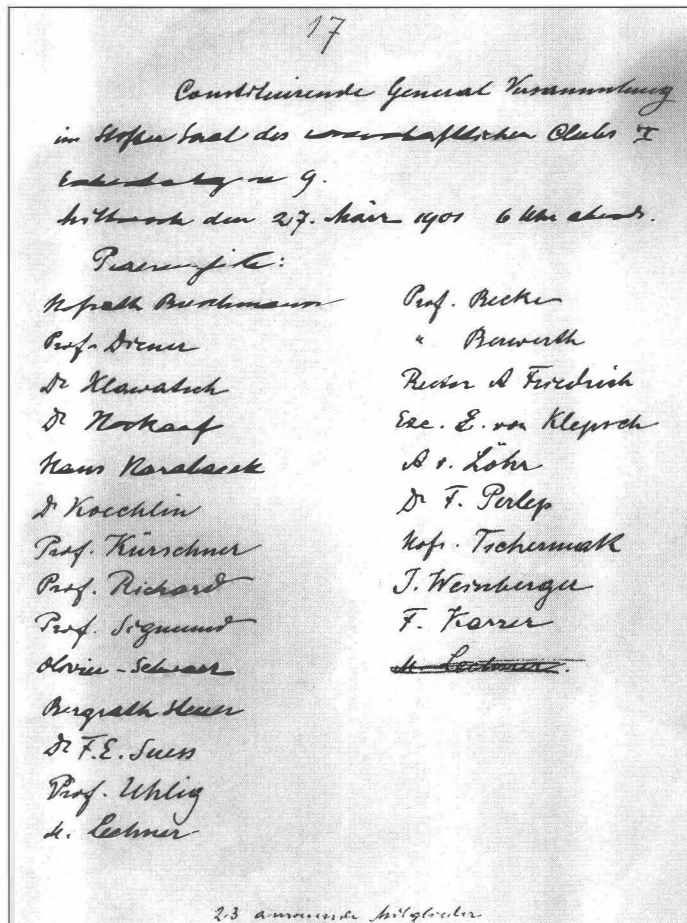 17
Constituirende General Versammlung
im Großen Saal des wissenschaftlichen Clubs I
9.
Mittwoch den 27. März 1901 6 Uhr abends.
Hofrath Buschmann
Prof. Diener
Dr Hlawatsch
Dr
Hans Karabacek
Dr Koechlin
Prof. Kürschner
Prof. Richard
Prof. Sigmund
Olivier-Schwarz
Bergrath
Dr F. E. Suess
Prof. Uhlig
M. Lechner
Prof. Becke
" Berwerth
Rector A Friedrich
Exc. E. von Klepsch
A v. Löhr
Dr F. Perlep
Hofr. Tschermak
J. Weinberger
F. Karrer
M. Lechner.
23 anwesende Mitglieder